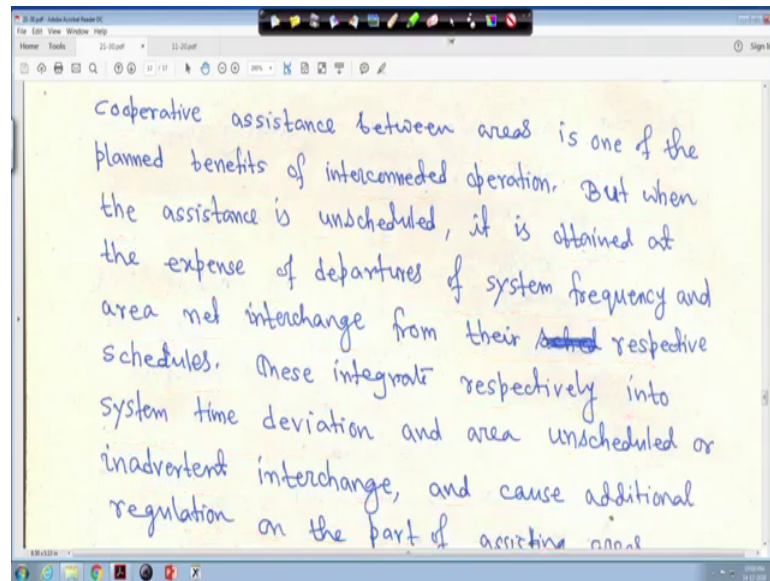 21-30.pdf - Adobe Acrobat Reader DC
File Edit View Window Help
Home Tools 21-30.pdf × 11-20.pdf Sign In
12 / 17 200%
Cooperative assistance between areas is one of the
planned benefits of interconnected operation. But when
the assistance is unscheduled, it is obtained at
the expense of departures of system frequency and
area net interchange from their respective
schedules. These integrate respectively into
system time deviation and area unscheduled or
inadvertent interchange, and cause additional
regulation on the part of assisting areas